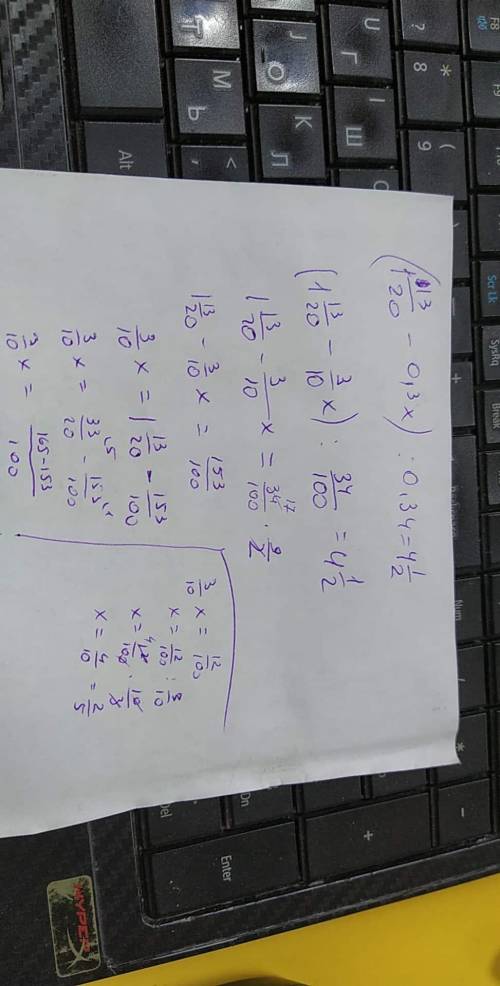 (1 13/20 - 0,3x) : 0,34 = 4 1/2
(1 13/20 - 3/10 x) : 34/100 = 4 1/2
1 13/20 - 3/10 x = 34/100 17 · 9/2
1 13/20 - 3/10 x = 153/100
3/10 x = 1 13/20 - 153/100
3/10 x = 33/20 - 153/100
3/10 x = 165-153/100
3/10 x = 12/100
x = 12/100 : 3/10
x = 12/100 · 10/3
x = 4/10 = 2/5
Alt
Enter
Del
Num
Scr Lk
SysRq
Break
F8
?
8
*
9
(
U
Г
I
Ш
J
О
K
Л
М
Ь
Т
<
+
-
HYPER